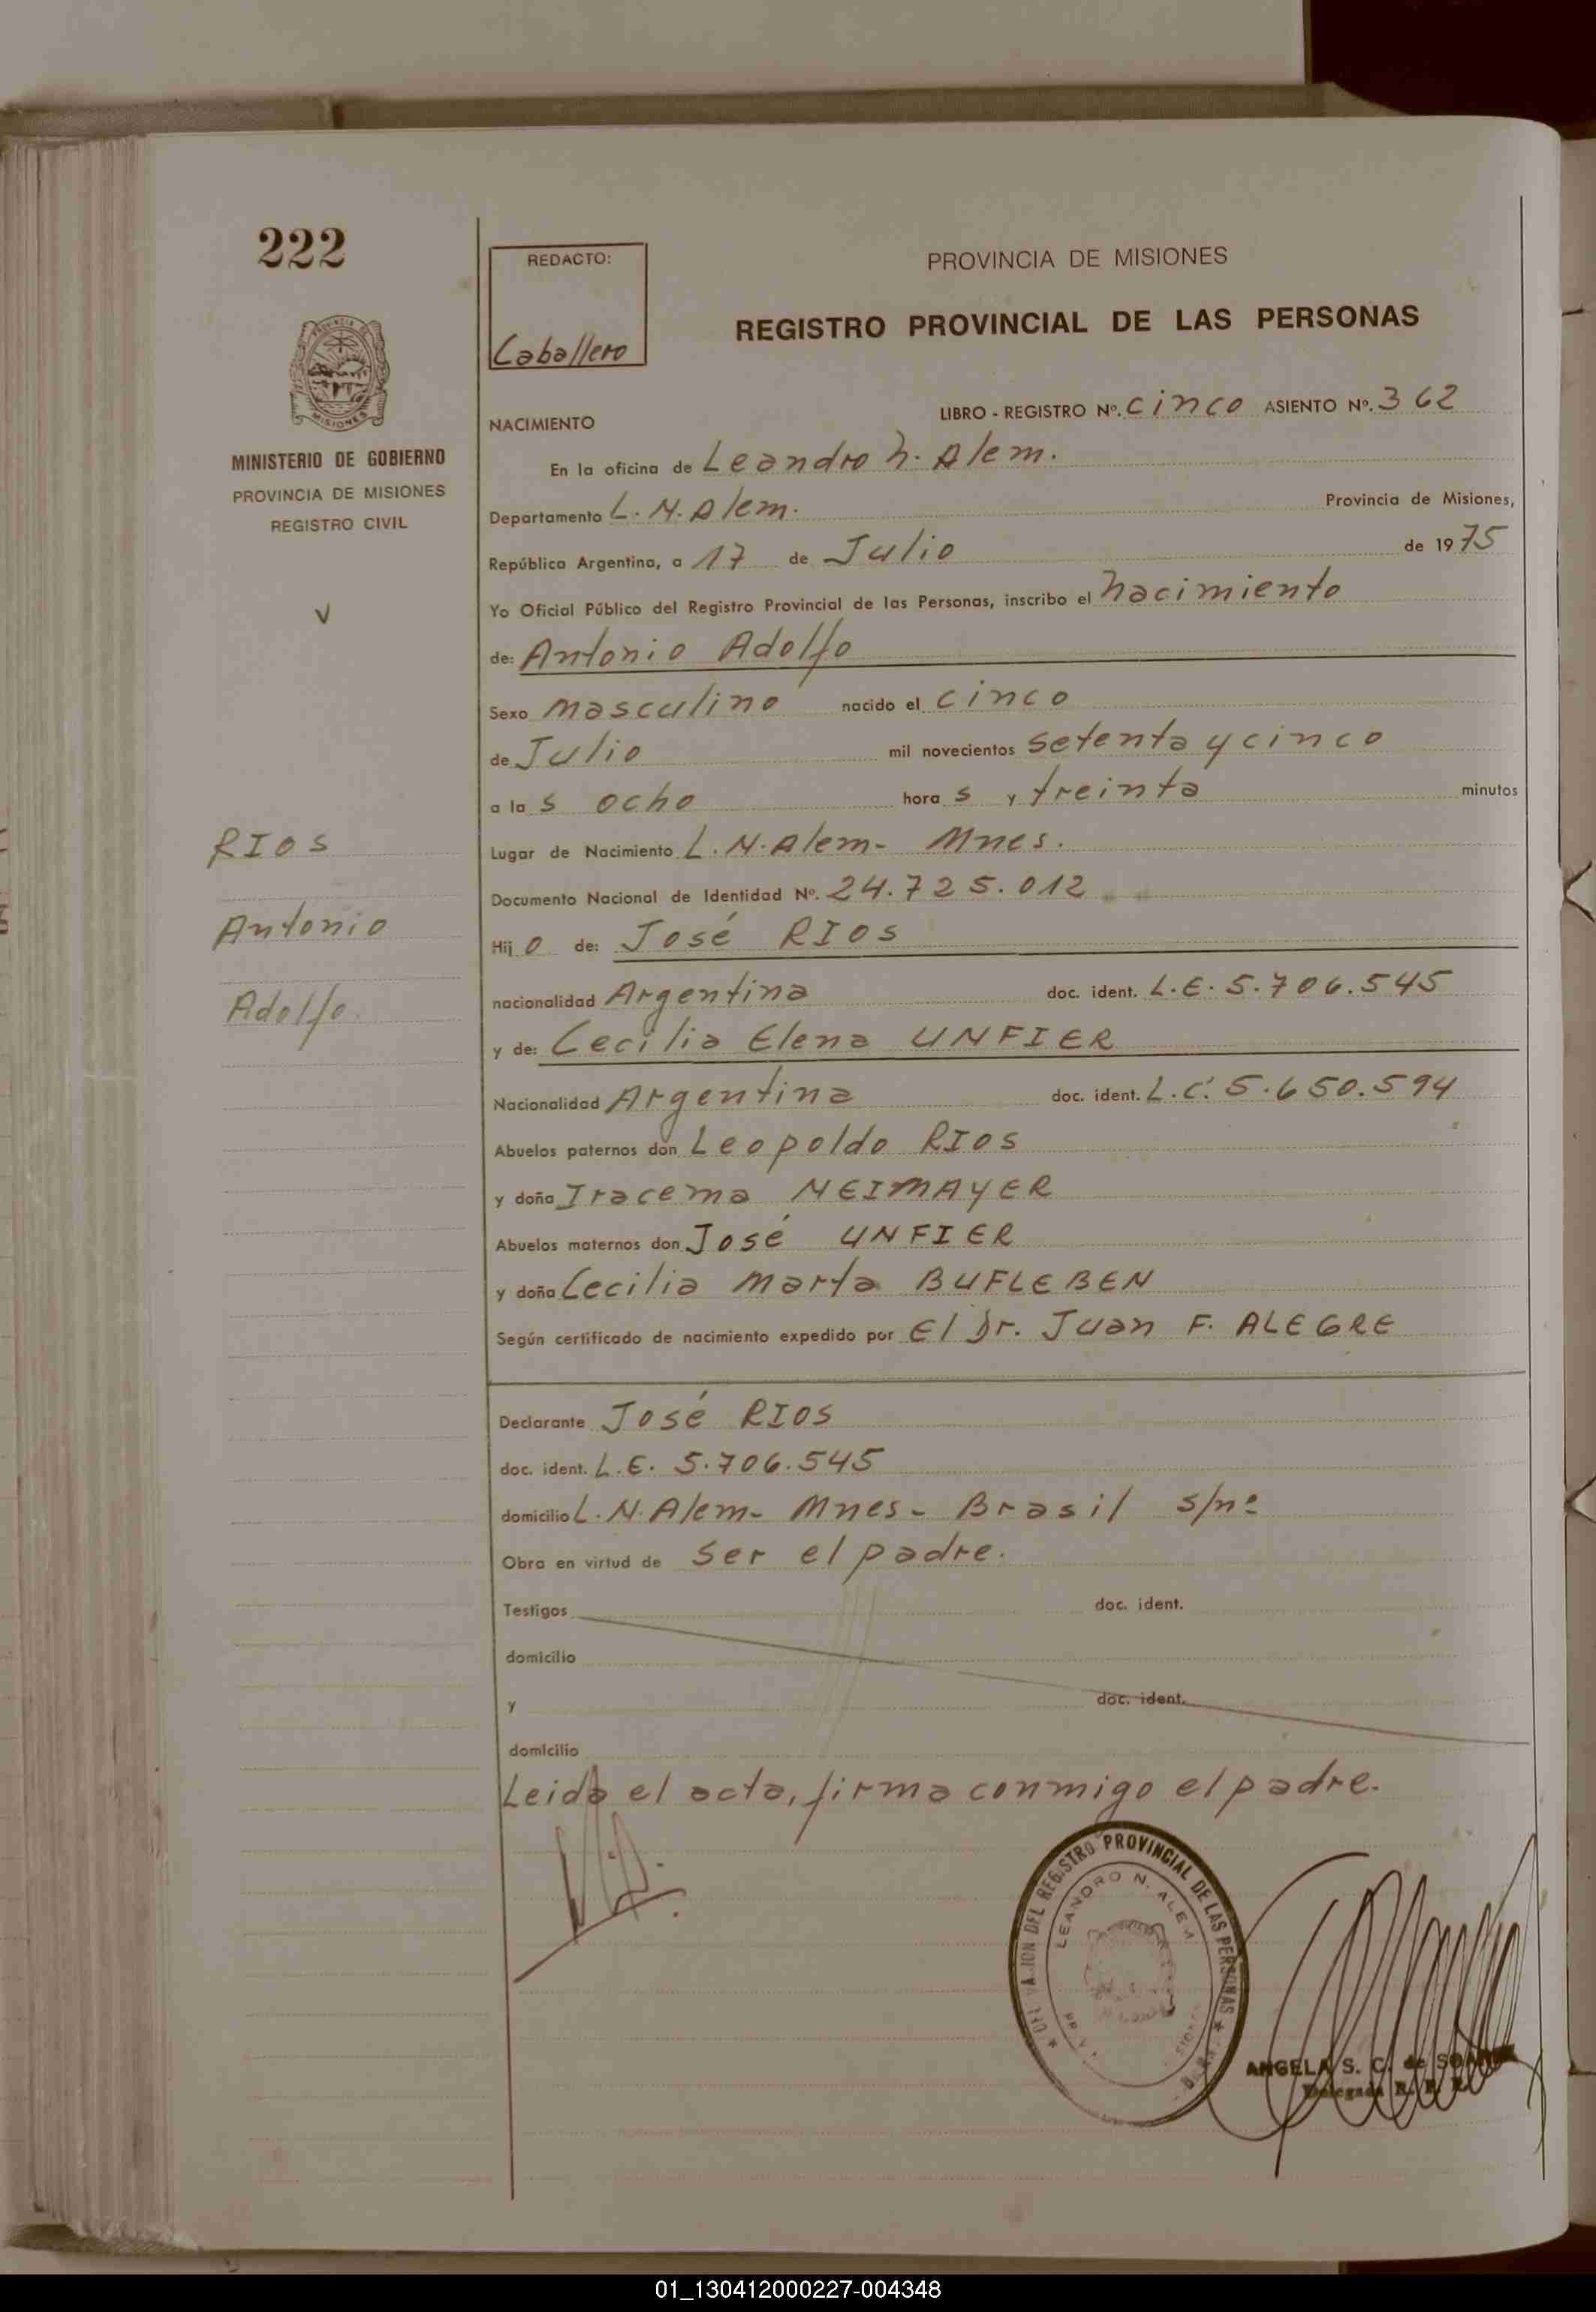 222
REDACTO:
Caballero
PROVINCIA DE MISIONES
REGISTRO PROVINCIAL DE LAS PERSONAS
PROVINCIA DE
MISIONES
MINISTERIO DE GOBIERNO
PROVINCIA DE MISIONES
REGISTRO CIVIL
RIOS
Antonio
Adolfo.
LIBRO - REGISTRO Nº. cinco ASIENTO Nº. 362
NACIMIENTO
En la oficina de Leandro N. Alem.
Departamento L. N. Alem. Provincia de Misiones,
República Argentina, a 17 de Julio de 1975
Yo Oficial Público del Registro Provincial de las Personas, inscribo el nacimiento
de: Antonio Adolfo
Sexo masculino nacido el cinco
de Julio mil novecientos setenta y cinco
a la s ocho hora s y treinta minutos
Lugar de Nacimiento L. N. Alem - Mnes.
Documento Nacional de Identidad Nº. 24.725.012
Hij o de: José RIOS
nacionalidad Argentina doc. ident. L.E. 5.706.545
y de: Cecilia Elena UNFIER
Nacionalidad Argentina doc. ident. L.C. 5.650.594
Abuelos paternos don Leopoldo RIOS
y doña Iracema NEIMAYER
Abuelos maternos don José UNFIER
y doña Cecilia Marta BUFLEBEN
Según certificado de nacimiento expedido por El Dr. Juan F. ALEGRE
Declarante José RIOS
doc. ident. L.E. 5.706.545
domicilio L. N. Alem - Mnes - Brasil s/nº
Obra en virtud de ser el padre.
Testigos doc. ident.
domicilio
y doc. ident.
domicilio
Leida el acta, firma conmigo el padre.
DEL REGISTRO PROVINCIAL DE LAS PERSONAS
LEANDRO N. ALEM
ANGELA S. C. de
Delegada R. P. P.
01_130412000227-004348